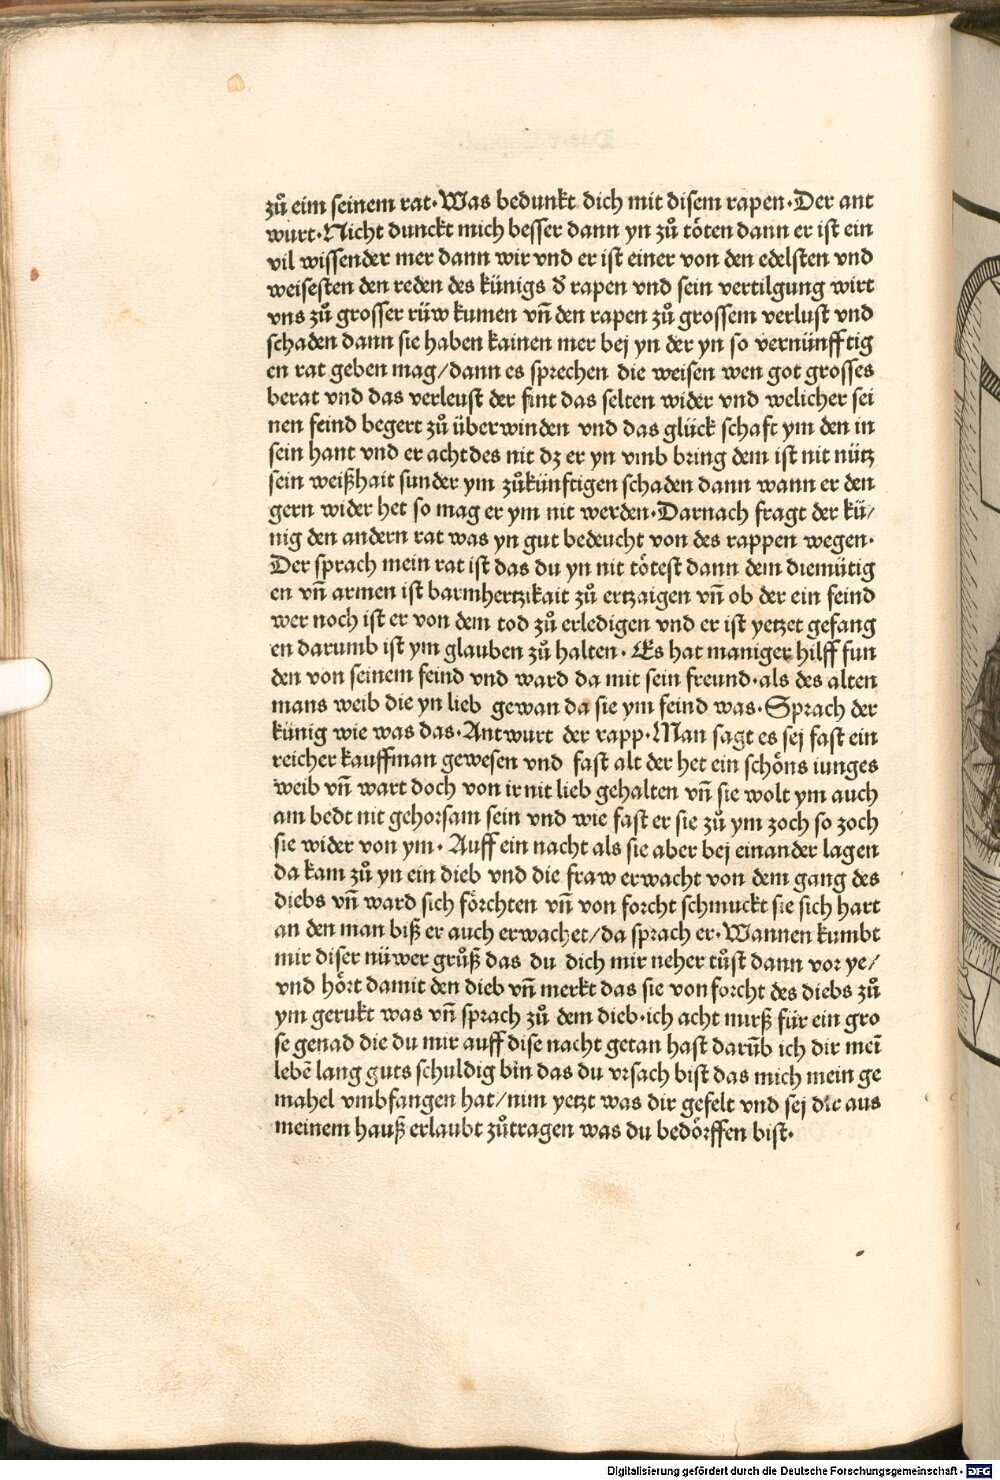 zů eim seinem rat·Was bedunkt dich mit disem rapen·Der ant
wurt·Nicht dunckt mich besser dann yn zů töten dann er ist ein
vil wissender mer dann wir vnd er ist einer von den edelsten vnd
weisesten den reden des künigs d̕ rapen vnd sein vertilgung wirt
vns zů grosser rüw kumen vn̄ den rapen zů grossem verlust vnd
schaden dann sie haben kainen mer bej yn der yn so vernünfftig
en rat geben mag/dann es sprechen die weisen wen got grosses
berat vnd das verleust der fint das selten wider vnd welicher sei
nen feind begert zů überwinden vnd das glück schaft ym den in
sein hant vnd er acht des nit dz er yn vmb bring dem ist nit nütz
sein weißhait sunder ym zůkünftigen schaden dann wann er den
gern wider het so mag er ym nit werden·Darnach fragt der kü/
nig den andern rat was yn gut bedeucht von des rappen wegen·
Der sprach mein rat ist das du yn nit tötest dann dem diemütig
en vn̄ armen ist barmhertzikait zů ertzaigen vn̄ ob der ein feind
wer noch ist er von dem tod zů erledigen vnd er ist yetzet gefang
en darumb ist ym glauben zů halten· Es hat maniger hilff fun
den von seinem feind vnd ward da mit sein freund·als des alten
mans weib die yn lieb gewan da sie ym feind was·Sprach der
künig wie was das·Antwurt der rapp·Man sagt es sej fast ein
reicher kauffman gewesen vnd fast alt der het ein schöns iunges
weib vn̄ wart doch von ir nit lieb gehalten vn̄ sie wolt ym auch
am bedt nit gehorsam sein vnd wie fast er sie zů ym zoch so zoch
sie wider von ym· Auff ein nacht als sie aber bej einander lagen
da kam zů yn ein dieb vnd die fraw erwacht von dem gang des
diebs vn̄ ward sich förchten vn̄ von forcht schmuckt sie sich hart
an den man biß er auch erwachet/da sprach er·Wannen kumbt
mir diser nüwer grůß das du dich mir neher tůst dann vor ye/
vnd hört damit den dieb vn̄ merkt das sie von forcht des diebs zů
ym gerukt was vn̄ sprach zů dem dieb·ich acht mirß für ein gro
se genad die du mir auff dise nacht getan hast darūb ich dir meī
lebē lang guts schuldig bin das du vrsach bist das mich mein ge
mahel vmbfangen hat/nim yetzt was dir gefelt vnd sej dir aus
meinem hauß erlaubt zůtragen was du bedörffen bist·
Digitalisierung gefördert durch die Deutsche Forschungsgemeinschaft - DFG